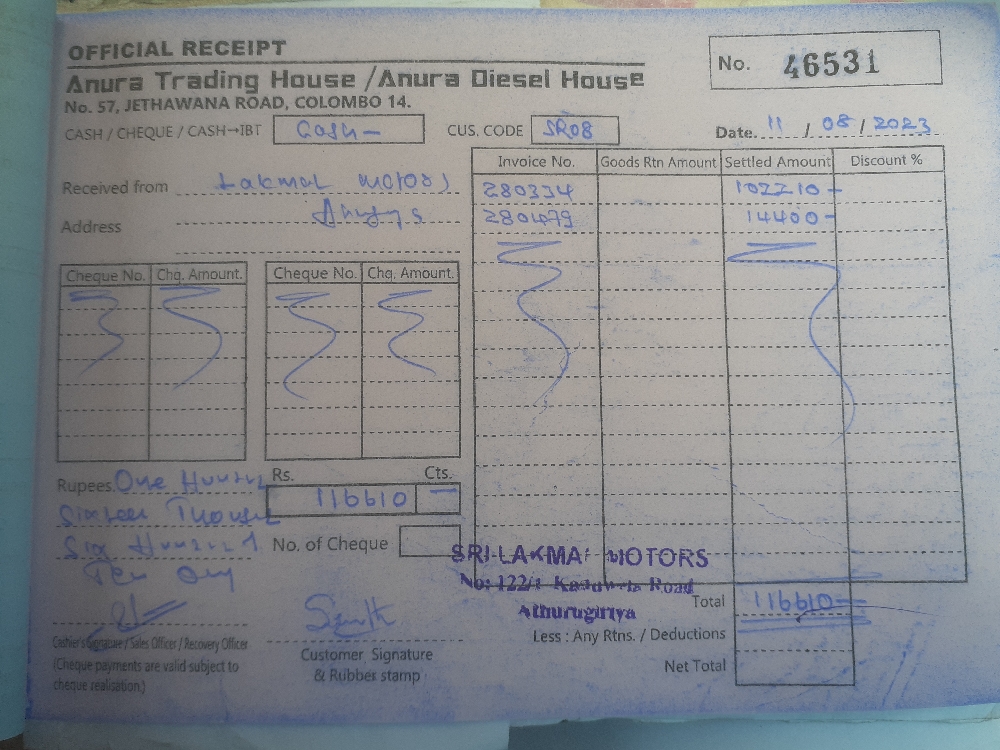 OFFICIAL RECEIPT
Anura Trading House /Anura Diesel House
No. 57, JETHAWANA ROAD, COLOMBO 14.
No. 46531
CASH / CHEQUE / CASH→IBT Cash -
CUS. CODE SR08
Date. 11 / 08 / 2023
Received from Lakmal Motors
Address
Invoice No. Goods Rtn Amount Settled Amount Discount %
280334 102210-
280479 14400-
Cheque No. Chq. Amount. Cheque No. Chq. Amount.
Rupees. One Hundred
Sixteen Thousand
Six Hundred
Ten Only
Rs. Cts.
116610 —
No. of Cheque
SRI LAKMAL MOTORS
No: 122/1 Kaduwela Road
Athurugiriya
Total 116610-
Less : Any Rtns. / Deductions
Net Total
Cashier's Signature / Sales Officer / Recovery Officer
(Cheque payments are valid subject to
cheque realisation.)
Customer Signature
& Rubber stamp